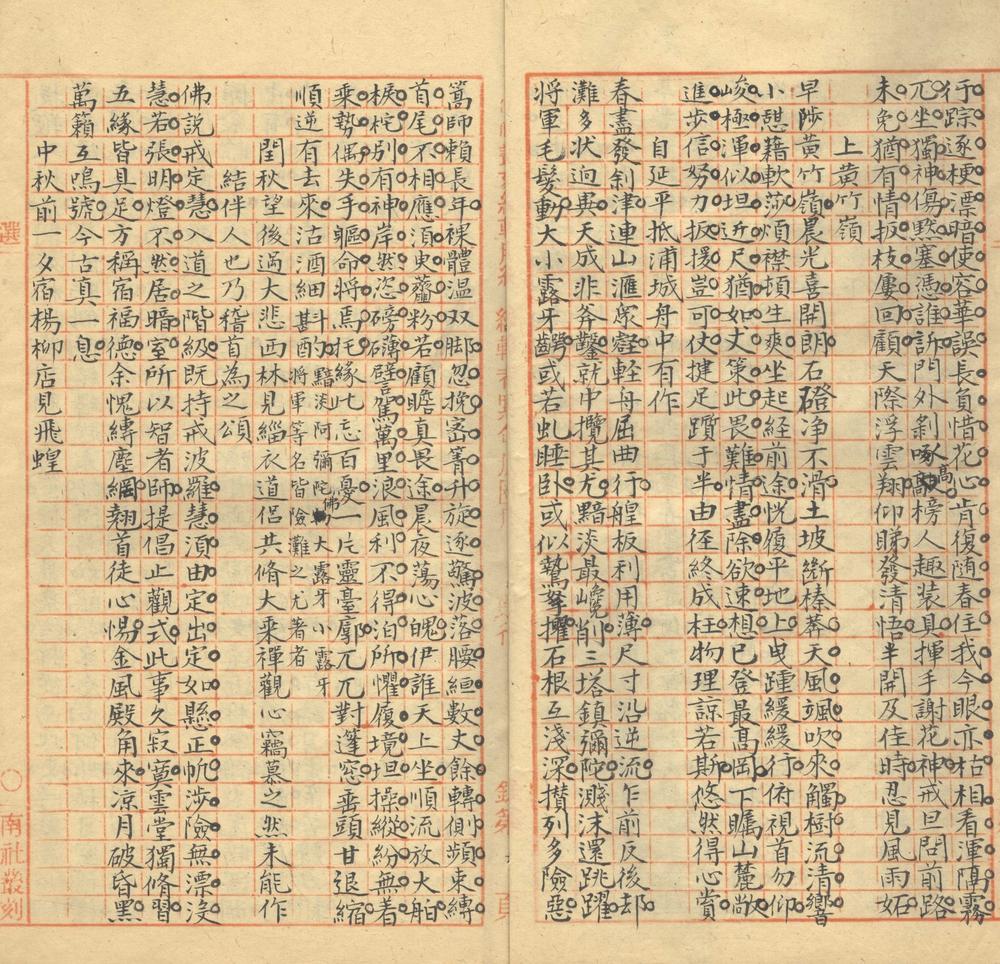 行踪逐梗漂暗使容華誤長負惜花心肯復随春住我今眼亦枯相看渾隔霧
兀坐獨神傷默塞憑誰訴門外剝啄高榜人趣装具揮手謝花神戒旦問前路
未免猶有情扳枝屢回顧天際浮雲翔仰睇發清悟半開及佳時忍見風雨妬
上黄竹嶺
早陟黄竹嶺晨光喜開朗石磴净不滑土坡斷榛莽天風颯吹來觸樹流清響
小憇藉軟莎煩襟頃生爽坐起経前途恍履平地上曳踵緩緩行俯視首勿仰
峻極渾似坦近尺猶如丈策此畏難情盡除欲速想已登最高岡下瞩山麓敞
進步信努力扳援豈可仗揵足躓于半由徑終成枉物理諒若斯悠然得心賞
自延平抵浦城舟中有作
春盡發劍津連山滙衆壑軽舟屈曲行艎板利用薄尺寸沿逆流乍前反後却
灘多状迥異天成非斧鑿就中攬其尤黯淡最巉削三塔鎮彌陀濺沫還跳躍
将軍毛髮動大小露牙齶或若虬睡卧或似鷙拏攫石根互淺深攅列多險惡
篙師賴長年裸體温双脚忽挽密箐升旋逐驚波落腰絙數丈餘轉側頻束縛
首尾不相應須臾虀粉若顧瞻真畏途晨夜蕩心魄伊誰天上坐順流放大舶
棙柁別有神岸然恣磅礴譬駕萬里浪風利不得泊所懼履境坦操縱紛無着
乘勢偶失手軀命将焉托緣此忘百憂一片靈臺廓兀兀對篷窓垂頭甘退縮
順逆有去來沽酒細斟酌黯淡阿彌陀佛大露牙小露牙将軍等名皆險灘之尤者
閏秋望後過大悲西林見緇衣道侣共脩大乘禪觀心竊慕之然未能作
結伴人也乃稽首為之頌
佛說戒定慧入道之階級既持戒波羅慧須由定出定如懸正帆涉險無漂沒
慧若張明燈不然居暗室所以智者師提倡止觀式此事久寂寞雲堂獨脩習
五緣皆具足方稱宿福德余愧縛塵綱翘首徒心惕金風殿角來凉月破昏黑
萬籟互鳴號今古真一息
中秋前一夕宿楊柳店見飛蝗
選
○南社叢刻